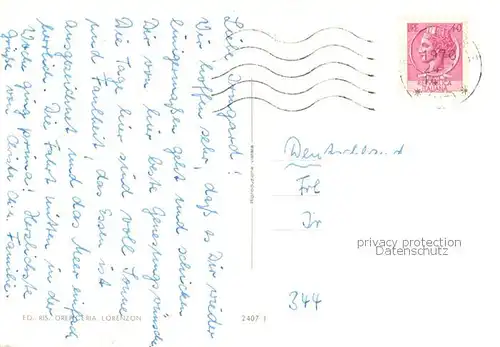 Liebe Irmgard!
Wir hoffen sehr, daß es Dir wieder
einigermaßen geht und schicken
Dir von hier beste Genesungswünsche.
Die Tage hier sind voll Sonne
und Faulheit, das Essen ist
ausgezeichnet und das Meer einfach
herrlich. Die Fahrt mitten in der
Woche ging prima! Herzlichste
Grüße von Familie.
LIRE 40
1970
ITALIANA
Deutschland
Frl
Ir
privacy protection
Datenschutz
344
ED. RIS. OREFICERIA LORENZON
2407 I
Riproduzione vietata